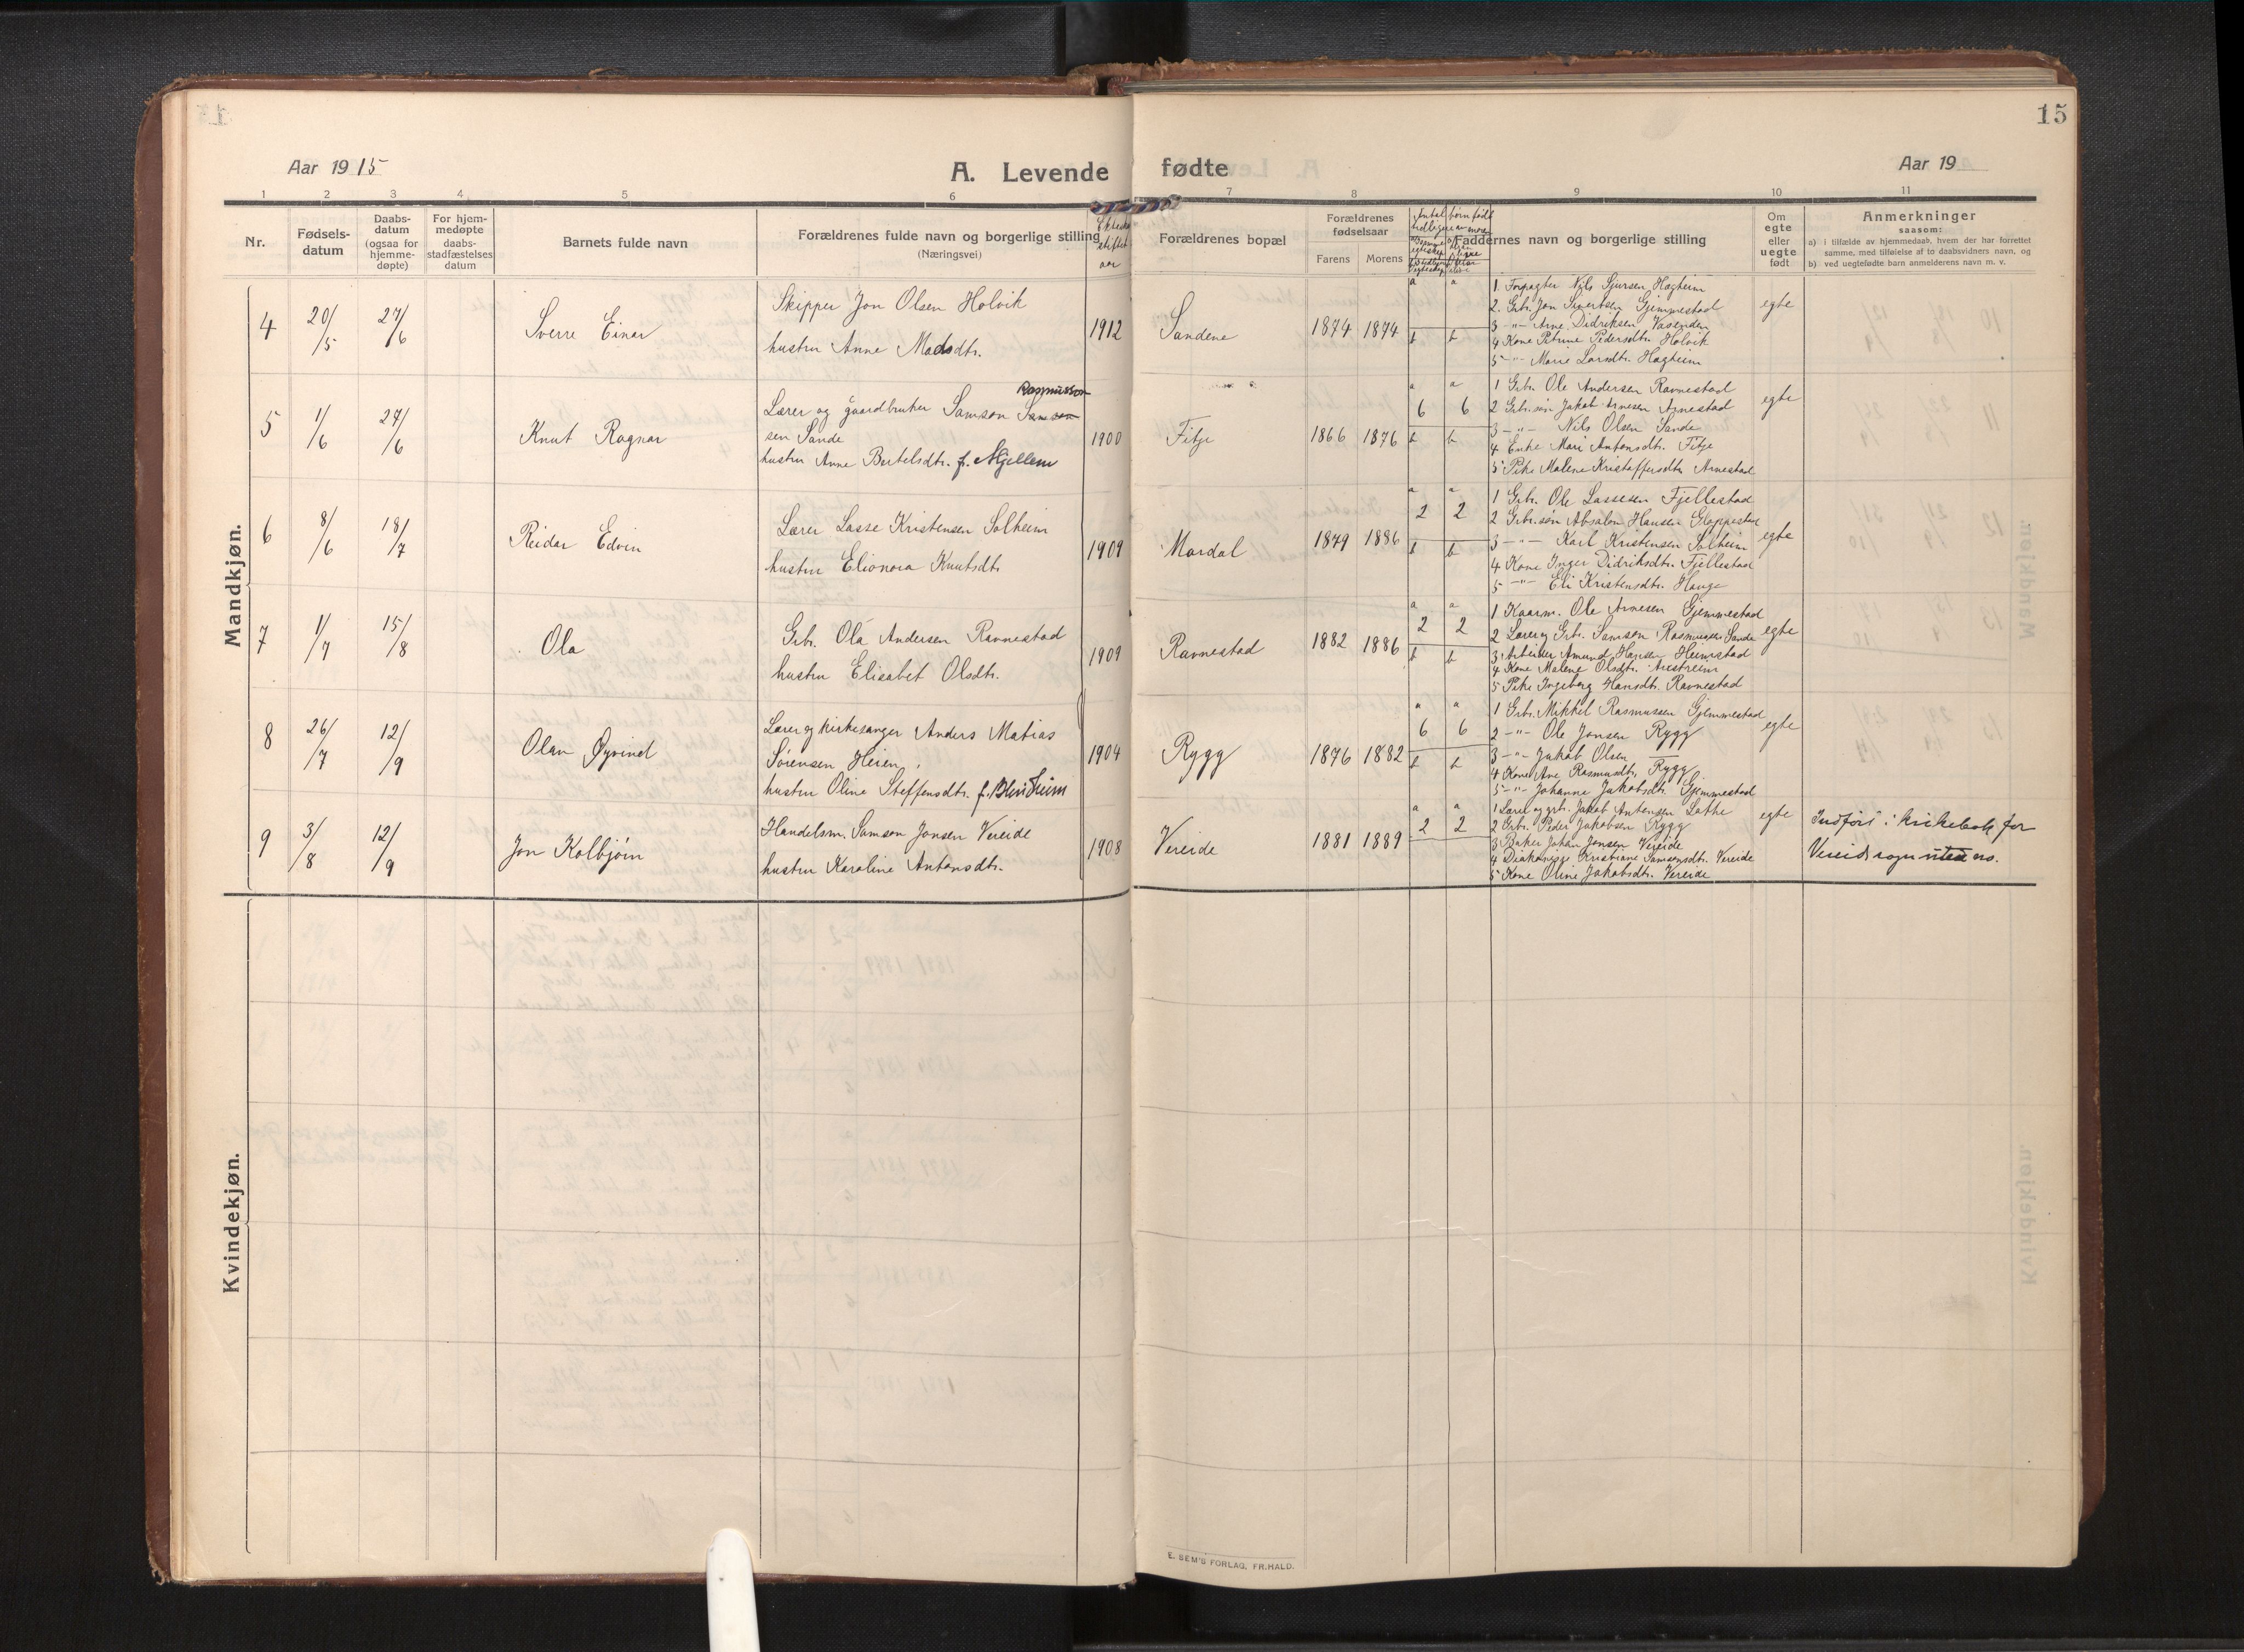 15
Aar 1915
A. Levende fødte
Aar 19
1 2 3 4 5 6 7 8 9 10 11
Nr.
Fødsels-
datum
Daabs-
datum
(ogsaa for
hjemme-
døpte)
For hjem-
medøpte
daabs-
stadfæstelses
datum
Barnets fulde navn
Forældrenes fulde navn og borgerlige stilling
(Næringsvei)
stiftet
aar
Forældrenes bopæl
Forældrenes
fødselsaar
Farens Morens
Antal børn født
tidligere av mor
Faddernes navn og borgerlige stilling
Om
egte
eller
uegte
født
Anmerkninger
saasom:
a) i tilfælde av hjemmedaab, hvem der har forrettet
samme, med tilføielse af to daabsvidners navn, og
b) ved uegtefødte barn anmelderens navn m. v.
Mandkjøn.
4
20/5
27/6
Sverre Einar
Skipper Jon Olsen Holvik
hustru Anne Madsdtr.
1912
Sandene
1874 1874
a a
b b
1. Forpagter Nils Sjursen Hagheim
2. Grb. Jon Sivertsen Gjemmestad
3 -"- Arne Didriksen Vasenden
4 Kone Petrine Pedersdtr. Holvik
5 -"- Marie Larsdtr. Hagheim
egte
5
1/6
27/6
Knut Ragnar
Rasmusson
Lærer og gaardbruker Samson Samson
sen Sande
hustru Anne Bertelsdtr. f. Mjellem
1900
Fitje
1866 1876
a a
6 6
b b
1 Grb. Ole Andersen Ravnestad
2 Grb.søn Jakob Arnesen Arnestad
3 -"- Nils Olsen Sande
4 Enke Mari Antonsdtr. Fitje
5 Pike Malene Kristoffersdtr. Arnestad
egte
6
8/6
18/7
Reidar Edvin
Lærer Lasse Kristensen Solheim
hustru Elionora Knutsdtr
1909
Mardal
1879 1886
a a
2 2
b b
1 Grb. Ole Lassesen Fjellestad
2 Grb.søn Absalon Hansen Gloppestad
3 -"- Karl Kristensen Solheim
4 Kone Inger Didriksdtr. Fjellestad
5 -"- Eli Kristensdtr. Hauge
egte
7
1/7
15/8
Ola
Grb. Ola Andersen Ravnestad
hustru Elisabet Olsdtr.
1909
Ravnestad
1882 1886
a a
2 2
b b
1 Kaarm. Ole Arnesen Gjemmestad
2 Lærer og Grb. Samson Rasmussen Sande
3 Arbeider Amund Hansen Heimstad
4 Kone Malene Olsdtr. Austreim
5 Pike Ingeborg Hansdtr. Ravnestad
egte
8
26/7
12/9
Olav Øyvind
Lærer og kirkesanger Anders Matias
Sørensen Heien,
hustru Oline Steffensdtr. f. Blindheim
1904
Rygg
1876 1882
a a
6 6
b b
1 Grb. Mikkel Rasmussen Gjemmestad
2 -"- Ole Jonsen Rygg
3 -"- Jakob Olsen
4 Kone Ane Rasmusdtr. Rygg
5 -"- Johanne Jakobsdtr. Gjemmestad
egte
9
3/8
12/9
Jon Kolbjørn
Handelsm. Samson Jonsen Vereide
hustru Karoline Antonsdtr.
1908
Vereide
1881 1889
a a
2 2
1 Lærer og grb. Jakob Antonsen Lothe
2 Grb. Peder Jakobsen Rygg
3 Baker Johan Jonsen Vereide
4 Diakonisse Kristiane Samsonsdtr. Vereide
5 Kone Oline Jakobsdtr. Vereide
egte
Indført i kirkebok for
Vereid sogn uten no.
Kvindekjøn.
E. SEM'S FORLAG, FR.HALD.